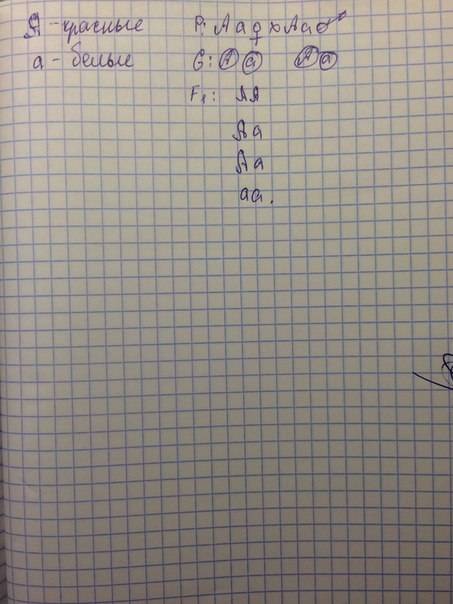 А - красные P: Aa♀ x Aa♂
а - белые G: A a A a
F₁: AA
Aa
Aa
aa.